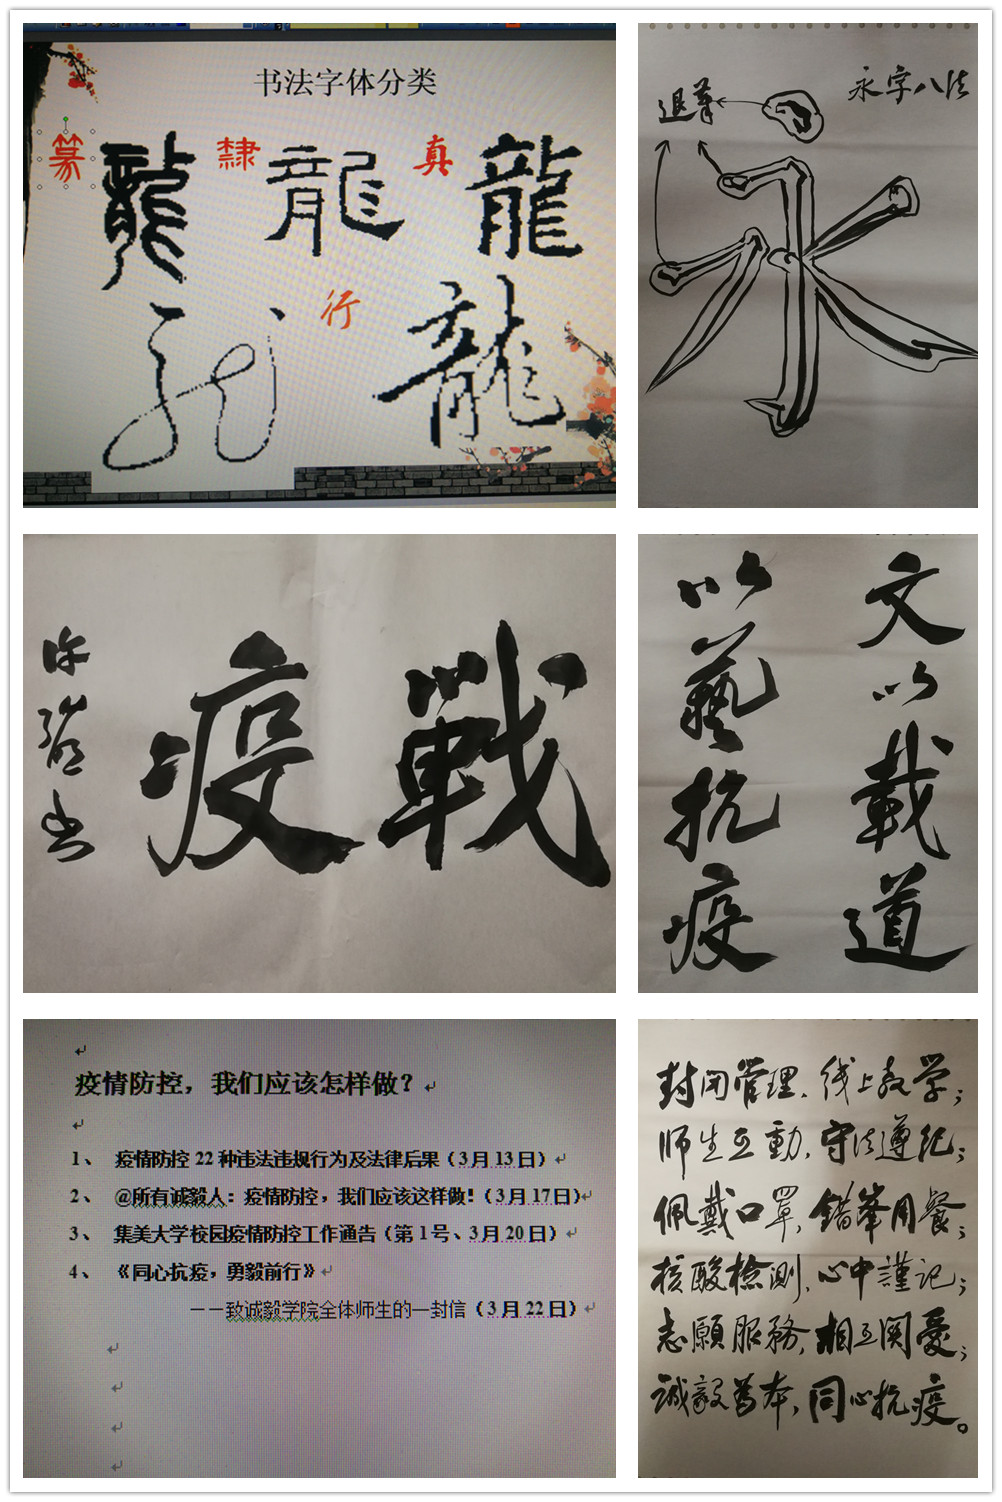 书法字体分类
篆 龍 隸 龍 真 龍
行
龍 龍
永字八法
永
戰疫
文以載道
以藝抗疫
疫情防控，我们应该怎样做？
1、 疫情防控 22 种违法违规行为及法律后果（3 月 13 日）
2、 @所有诚毅人：疫情防控，我们应该这样做！（3 月 17 日）
3、 集美大学校园疫情防控工作通告（第 1 号、3 月 20 日）
4、 《同心抗疫，勇毅前行》
——致诚毅学院全体师生的一封信（3 月 22 日）
封闭管理，线上教学；
师生互動，守法遵纪；
佩戴口罩，錯峯用餐；
核酸检测，心中謹记；
志願服務，相互関愛；
誠毅为本，同心抗疫。